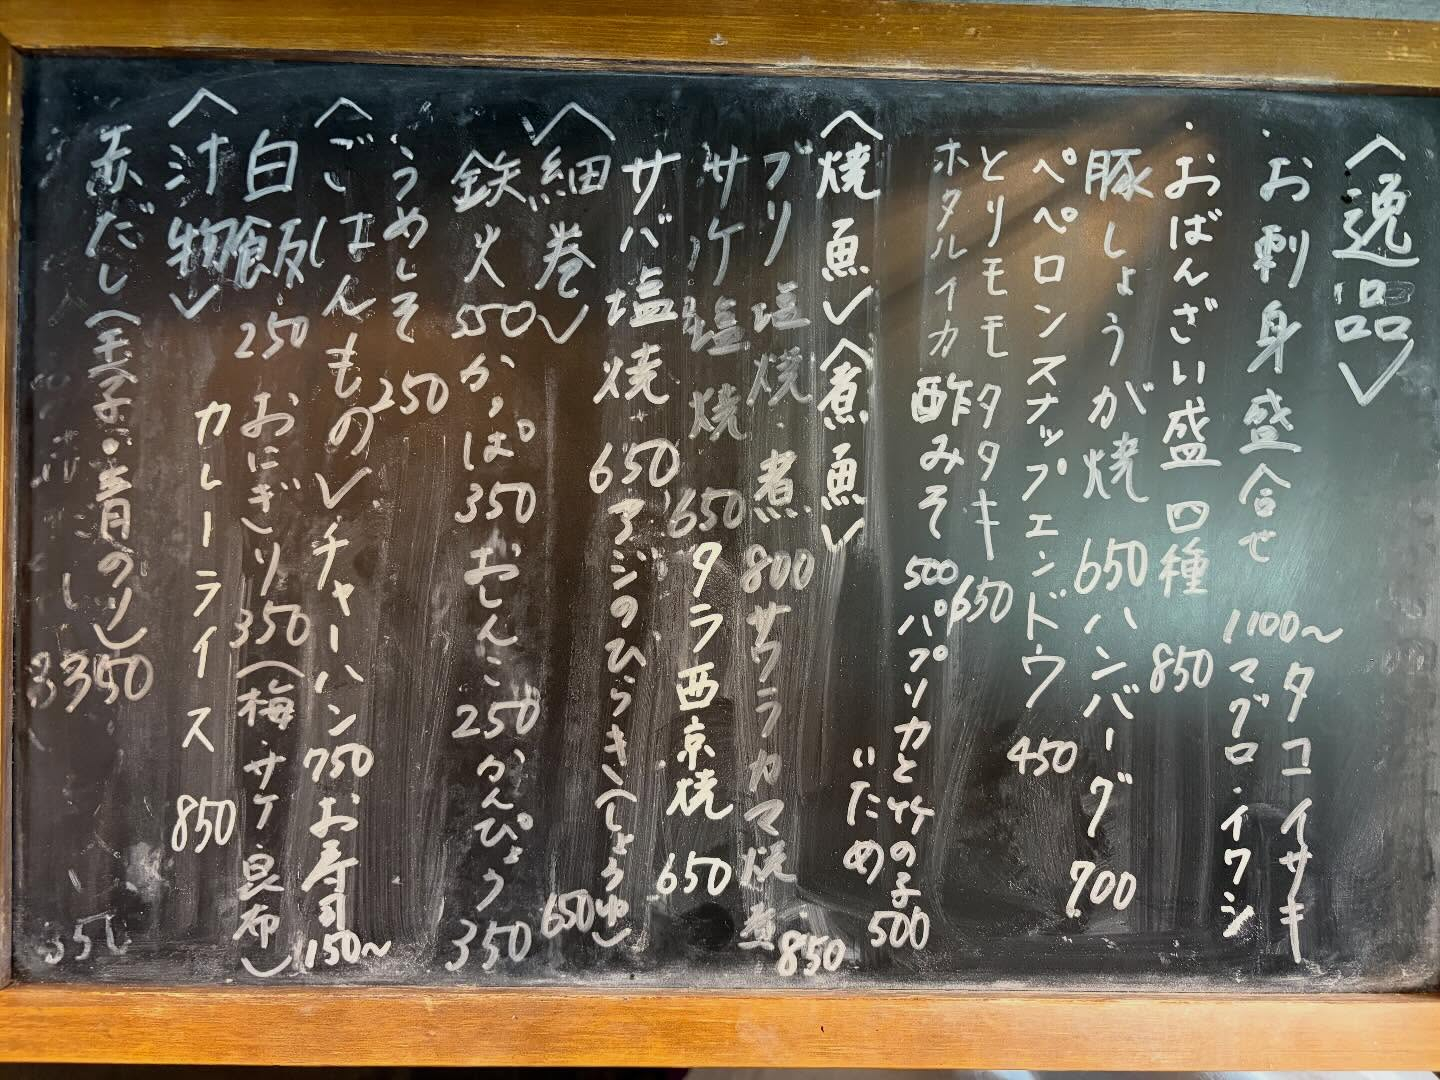 〈逸品〉
・お刺身盛合せ 1100〜 タコイサキ
マグロ・イワシ
・おばんざい盛 四種 850
豚しょうが焼 650 ハンバーグ 700
ペペロンスナップエンドウ 450
とりモモタタキ 650
ホタルイカ酢みそ 500 パプリカと竹の子 500
いため
〈焼魚〉〈煮魚〉
ブリ塩焼・煮 800 サワラカマ焼煮 850
サケ塩焼 650 タラ西京焼 650
サバ塩焼 650 アジのひらき(しょうゆ) 650
〈細巻〉
鉄火 550 かっぱ 350 おしんこ 250 かんぴょう 350
・うめしそ 250
〈ごはんもの〉チャーハン 750 お寿司 150〜
白飯 250 おにぎり 350 (梅・サケ・昆布)
カレーライス 850
〈汁物〉
赤だし(玉子・青のり) 350